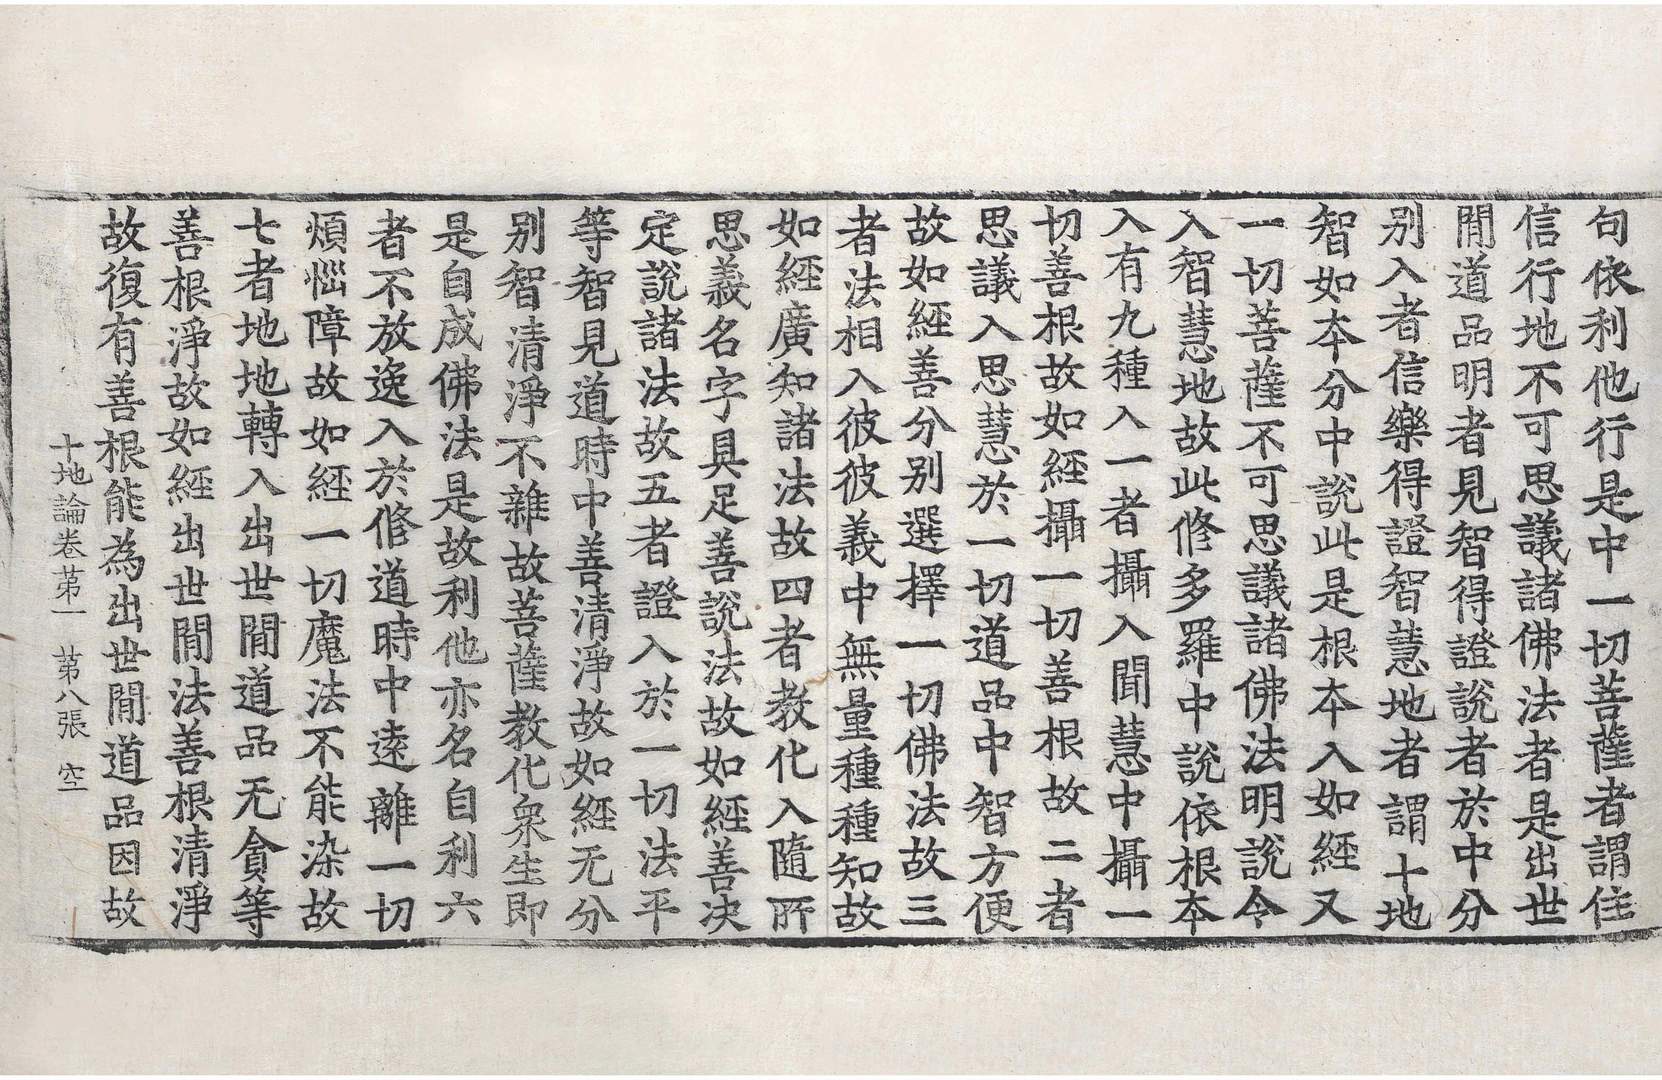 句依利他行是中一切菩薩者謂住
信行地不可思議諸佛法者是出世
閒道品明者見智得證說者於中分
別入者信樂得證智慧地者謂十地
智如本分中說此是根本入如經又
一切菩薩不可思議諸佛法明說令
入智慧地故此修多羅中說依根本
入有九種入一者攝入聞慧中攝一
切善根故如經攝一切善根故二者
思議入思慧於一切道品中智方便
故如經善分別選擇一切佛法故三
者法相入彼彼義中無量種種知故
如經廣知諸法故四者教化入隨所
思義名字具足善說法故如經善决
定說諸法故五者證入於一切法平
等智見道時中善清淨故如經无分
別智清淨不雜故菩薩教化衆生即
是自成佛法是故利他亦名自利六
者不放逸入於修道時中遠離一切
煩惱障故如經一切魔法不能染故
七者地地轉入出世閒道品无貪等
善根淨故如經出世閒法善根清淨
故復有善根能為出世閒道品因故
十地論卷苐一 苐八張 空